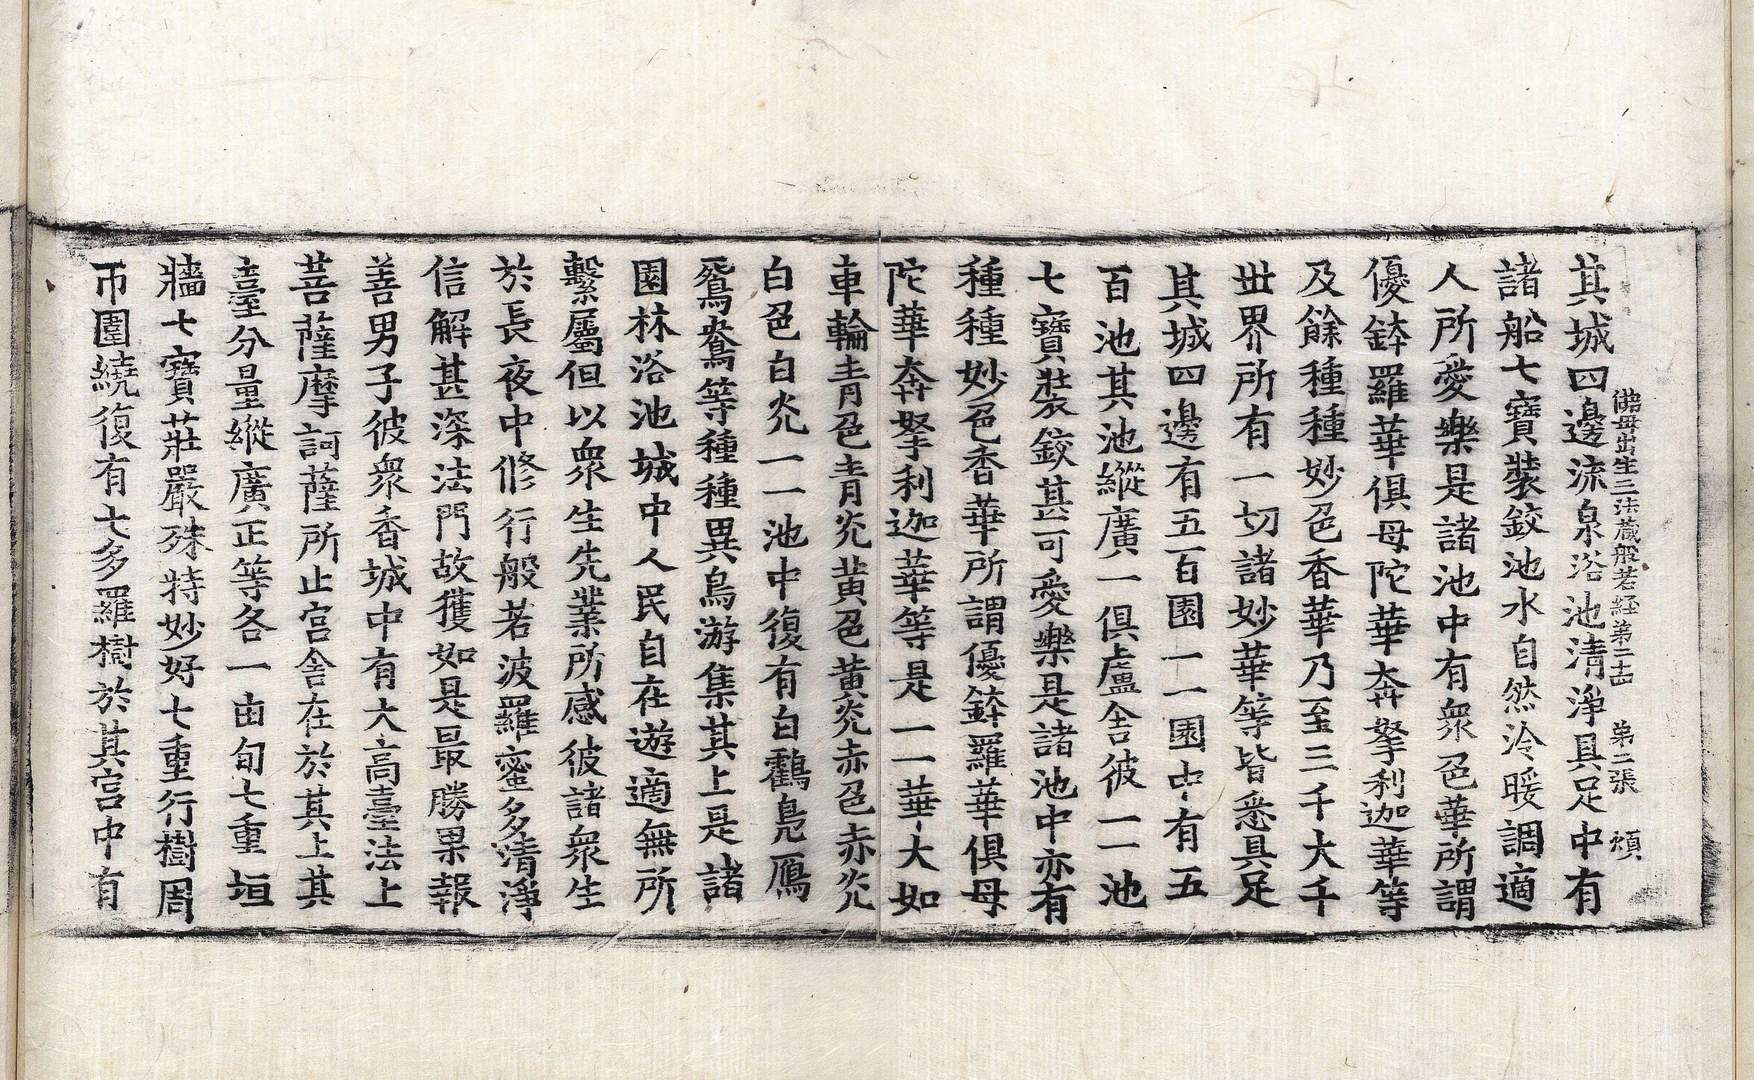 佛母出生三法藏般若経第二十五 第二張 煩
其城四邊流泉浴池清淨具足中有
諸船七寶裝鈙池水自然冷暖調適
人所愛樂是諸池中有衆色華所謂
優鉢羅華俱母陀華奔拏利迦華等
及餘種種妙色香華乃至三千大千
世界所有一切諸妙華等皆悉具足
其城四邊有五百園一一園中有五
百池其池縱廣一俱盧舍彼一一池
七寶裝鈙甚可愛樂是諸池中亦有
種種妙色香華所謂優鉢羅華俱母
陀華奔拏利迦華等是一一華大如
車輪青色青光黃色黃光赤色赤光
白色白光一一池中復有白鶴鳧鴈
鴛鴦等種種異鳥游集其上是諸
園林浴池城中人民自在遊適無所
繫屬但以衆生先業所感彼諸衆生
於長夜中修行般若波羅蜜多清淨
信解甚深法門故獲如是最勝果報
善男子彼衆香城中有大高臺法上
菩薩摩訶薩所止宮舍在於其上其
臺分量縱廣正等各一由旬七重垣
牆七寶莊嚴殊特妙好七重行樹周
帀圍繞復有七多羅樹於其宮中有